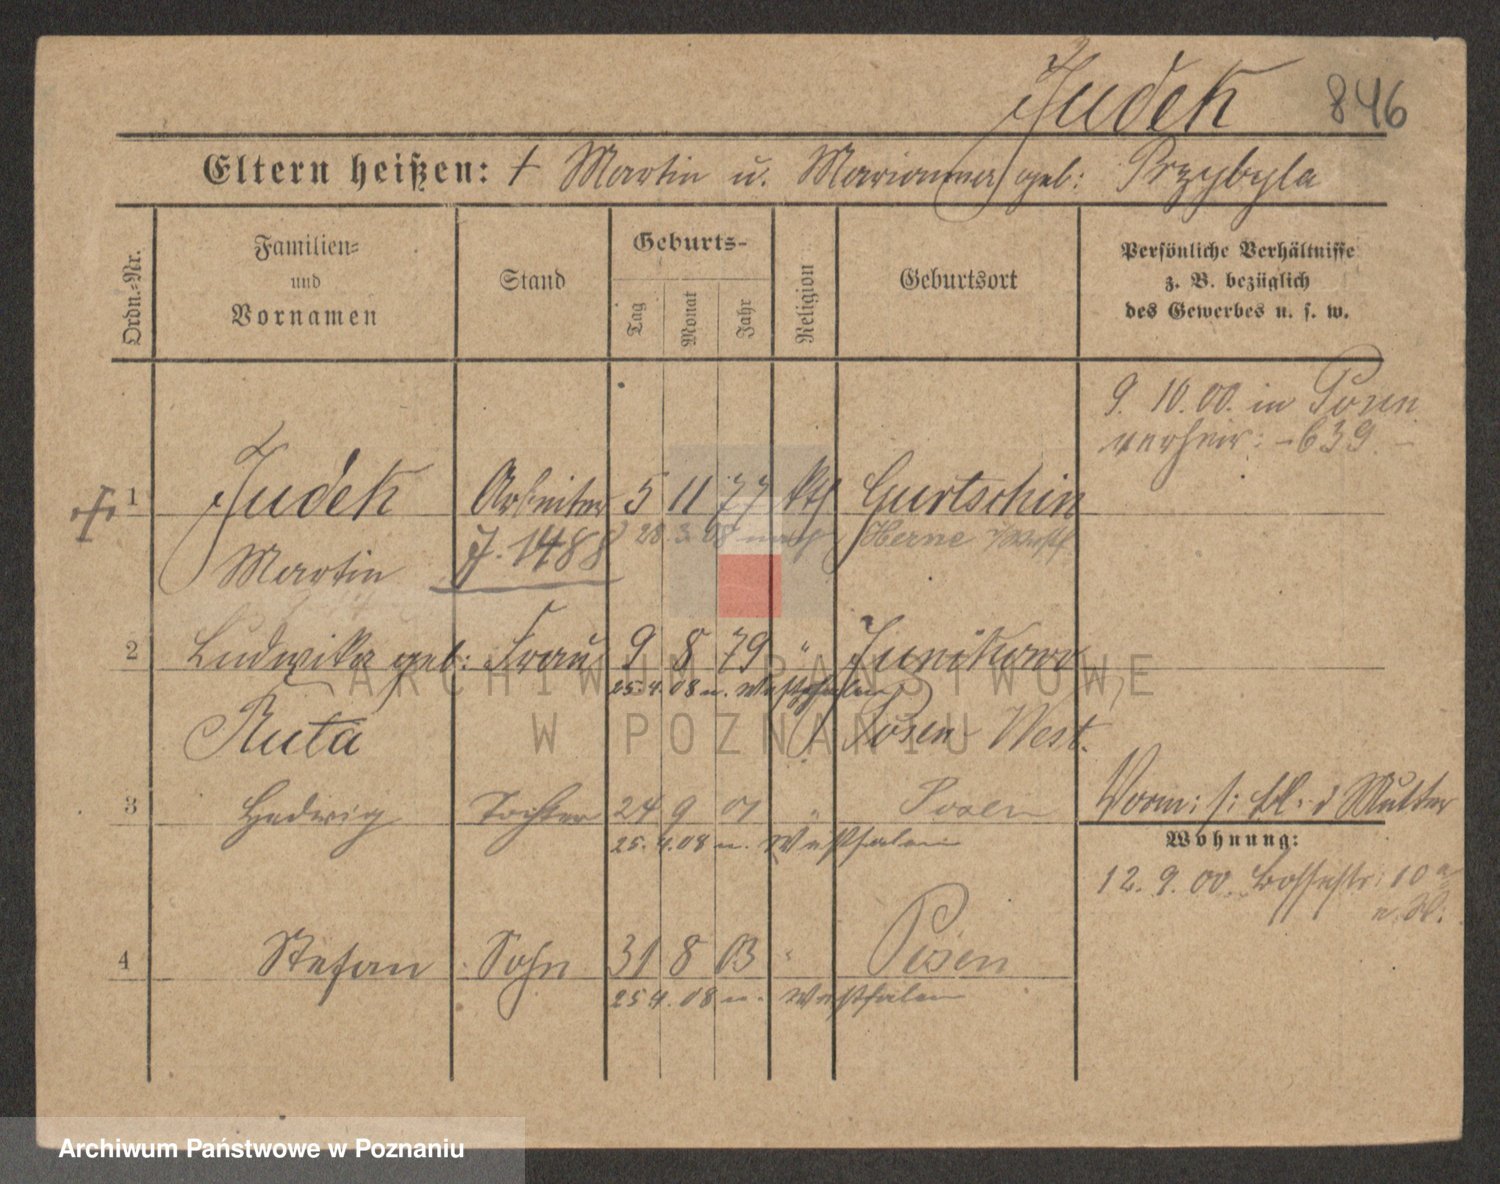 Judek 846
Eltern heißen: † Martin u. Marianna geb: Przybyla
Ordn.-Nr.
Familien-
und
Vornamen
Stand
Geburts-
Tag
Monat
Jahr
Religion
Geburtsort
Persönliche Verhältnisse
z. B. bezüglich
des Gewerbes u. s. w.
9. 10. 00. in Posen
verheir: - 639. -
1 Judek Arbeiter 5 11 77 kth Gurtschin
28. 3. 08 nach Herne i/Westf
Martin J. 1488
2 Ludwika geb: Frau 9 8 79 " Junikowo
25. 4. 08 n. Westfalen
Ruta Posen West.
3 Hedwig Tochter 24 9 01 " Posen
25. 4. 08 n. Westfalen
Vorm: s: bl. d Mutter
Wohnung:
12. 9. 00. 10a
4 Stefan Sohn 31 8 03 " Posen
25 4. 08 n. Westfalen
ARCHIWUM PAŃSTWOWE
W POZNANIU
Archiwum Państwowe w Poznaniu